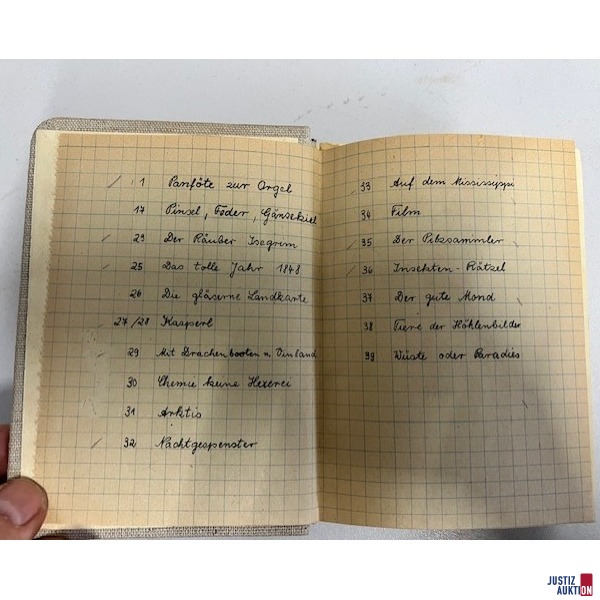 1 Panföte zur Orgel
17 Pinsel, Feder, Gänsekiel
23 Der Räuber Isegrim
25 Das tolle Jahr 1848
26 Die gläserne Landkarte
27/28 Kasperl
29 Mit Drachenbooten n. Vinland
30 Chemie keine Hexerei
31 Arktis
32 Nachtgespenster
33 Auf dem Mississippi
34 Film
35 Der Pilzsammler
36 Insekten-Rätzel
37 Der gute Mond
38 Tiere der Höhlenbilder
39 Wüste oder Paradies
JUSTIZ
AUKTION